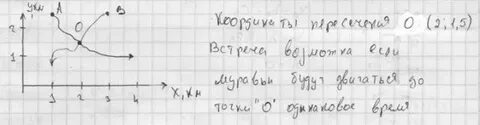 y, км
A
B
2
O
1
1 2 3 4
x, км
Координаты пересечения O (2; 1,5)
Встреча возможна если
муравьи будут двигаться до
точки "O" одинаковое время